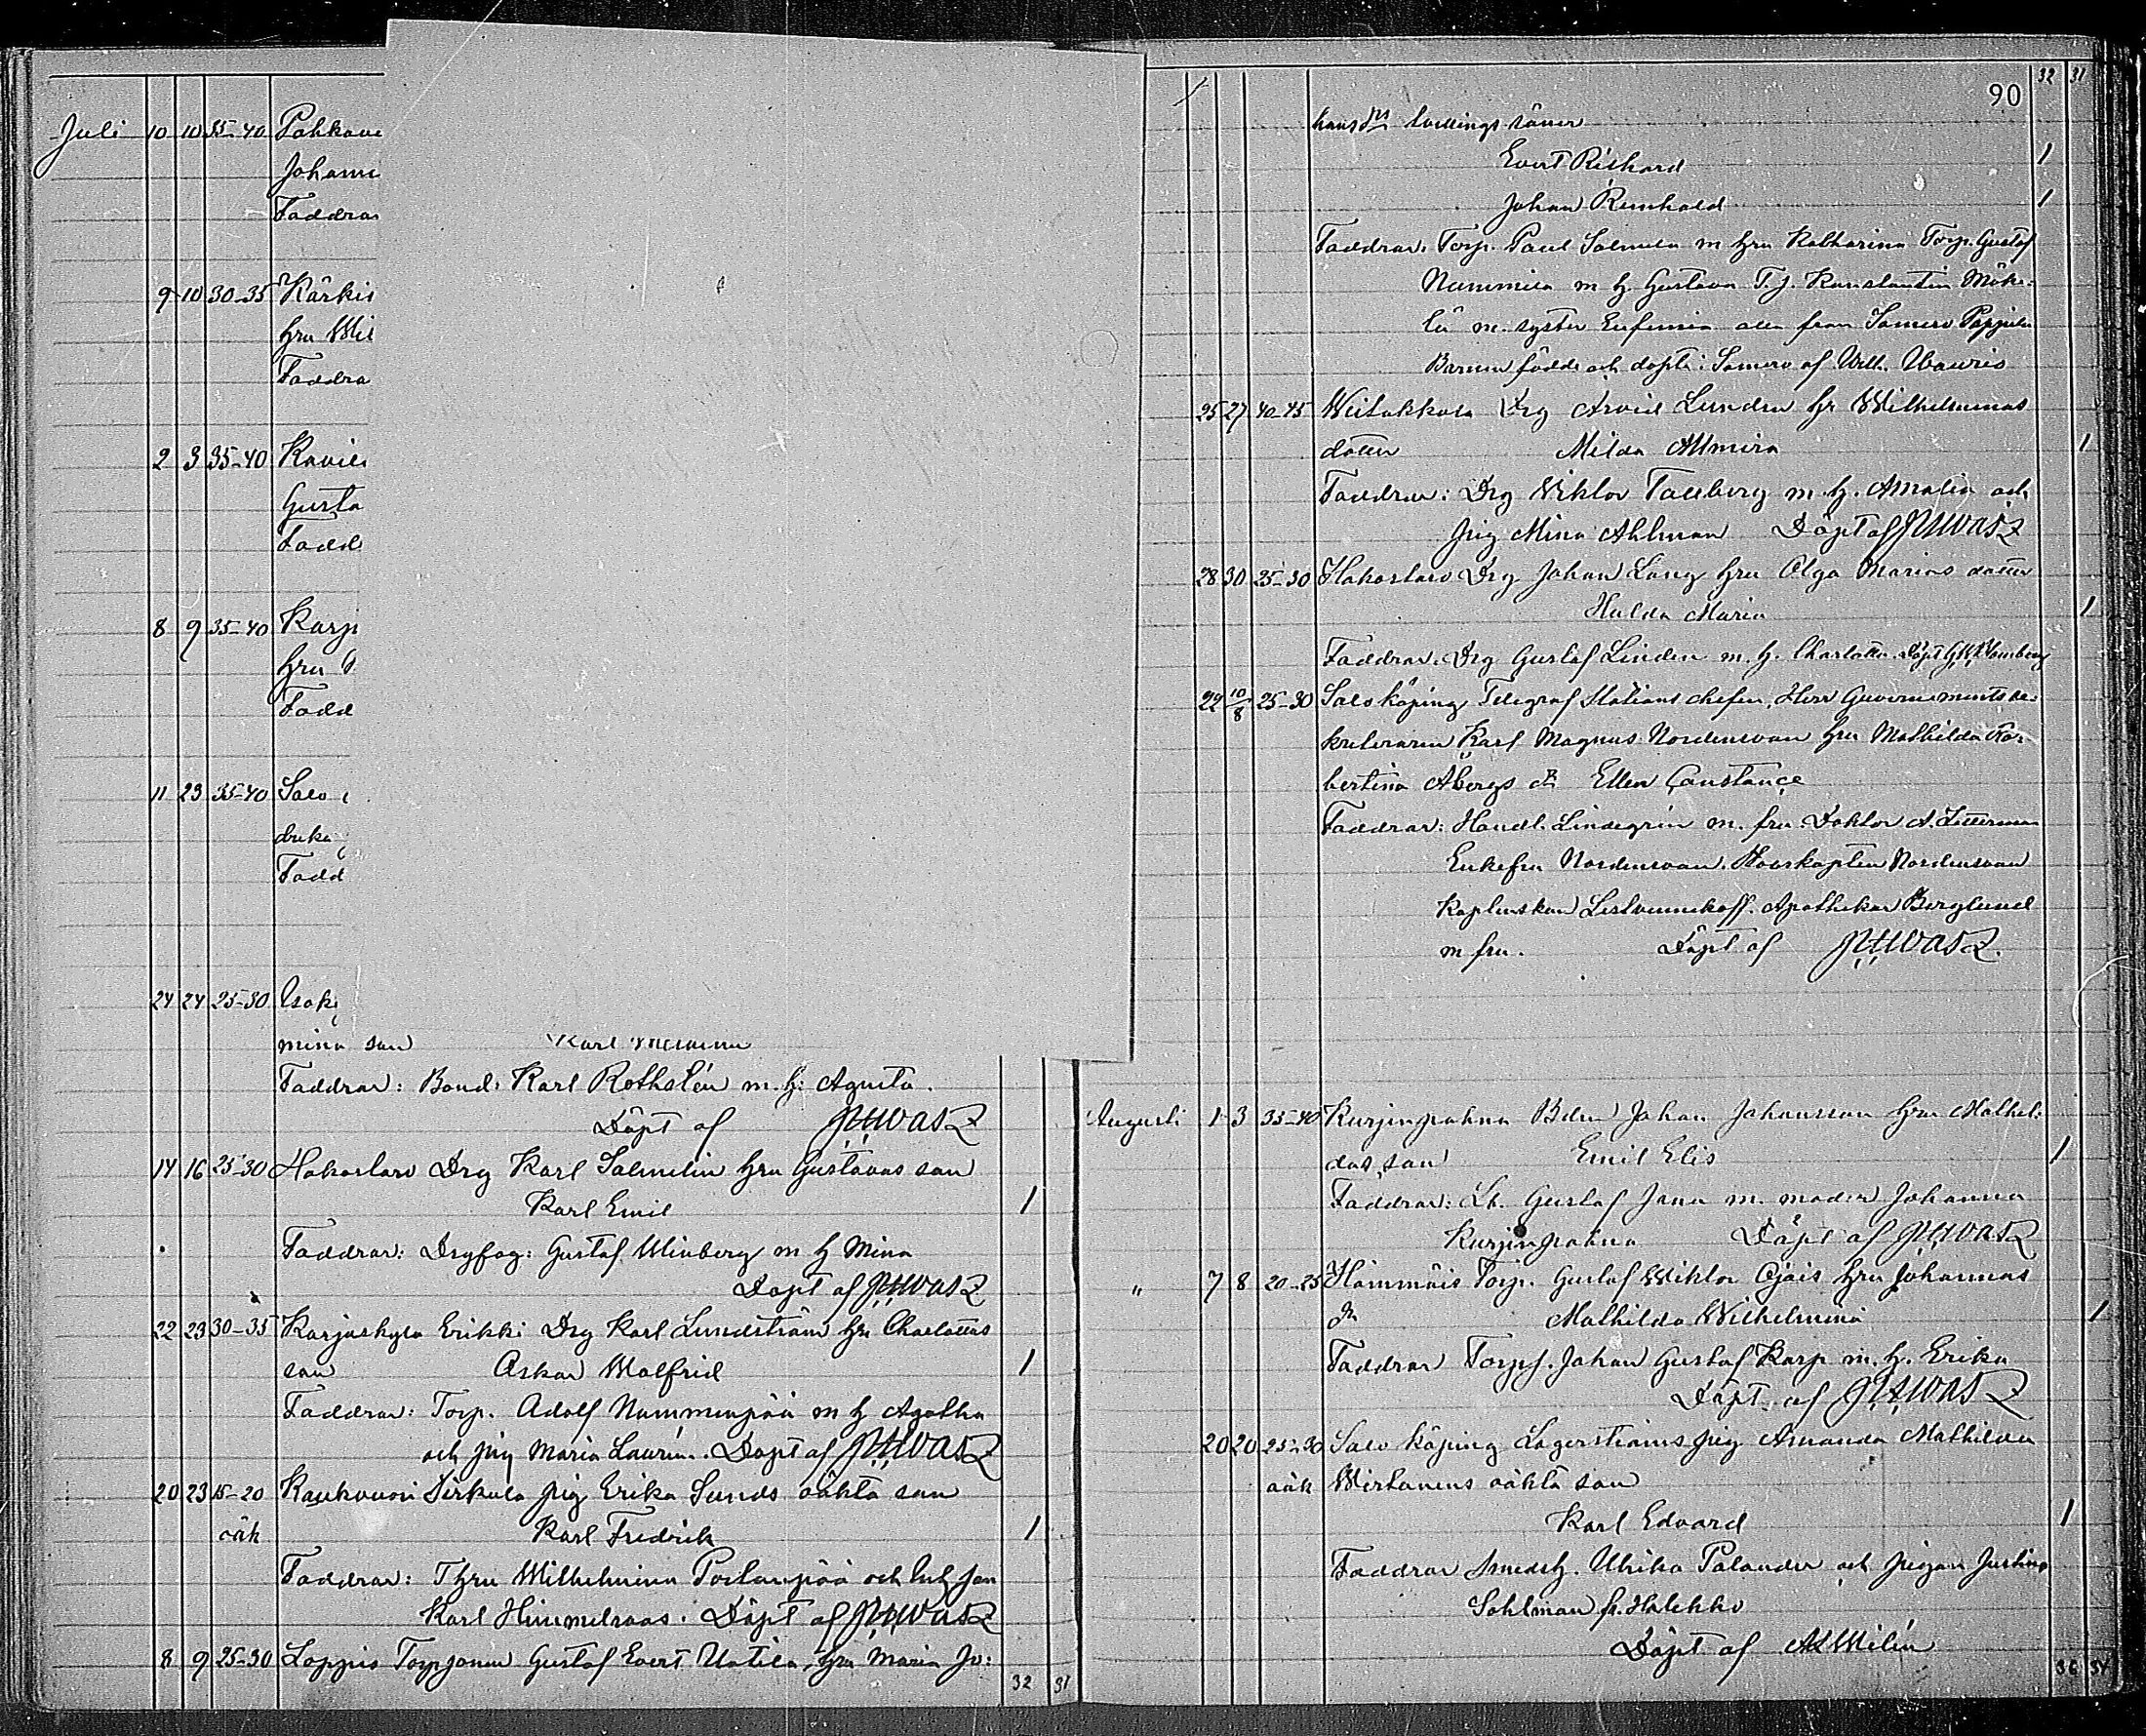 Juli 10 10 35-40 Pahkave
Johann
Faddrar
9 10 30-35 Kärkis
hru Wil
Faddra
2 3 35-40 Kavil
Gusta
Fadd
8 9 35-40 Karji
hru
Fadd
11 23 35-40 Salo
drika
Fadd
24 24 25-30 Isok
mina son Karl
Faddrar: Bond. Karl Rothslén m. h: Agusta.
Döpt af
14 16 25-30 Hakostaro Drg Karl Salmelin hru Gustavas son
Karl Emil 1
Faddrar: Drgfog: Gustaf Winberg m h Mina
Döpt af
22 23 30-35 Karjaskylä Erikki Drg Karl Lundström hru Charlottas
son Oskar Walfrid 1
Faddrar: Torp. Adolf Nummenpää m h Agatha
och pig Maria Laurin. Döpt af
20 23 15-20 Kaukvuori Sirkula pig Erika Sunds oäkta son
oäk Karl Fredrik 1
Faddrar: Thru Wilhelmina Portanpää och Inh. son
Karl Himmelroos. Döpt af
8 9 25-30 Loppis Torpsonen Gustaf Evert Uotila, hru Maria Jo:
32 31
32 31
90
hans drs tvillings söner
Evert Rikhard 1
Johan Reinhold 1
Faddrar. Torp. Paul Salmela m hru Katharina Torp. Gustaf
Nummila m h. Gustava T.j. Konstantin Mäke-
lä m. syster Eufemia alla från Somero Pappila
Barnen födde och döpte i Somero af Wilh.
25 27 40-45 Drg Arvid Lunden hr Wilhelminas
dotter Milda Allmira 1
Faddrar: Drg Viktor Tallberg m. h. Amalia och
pig Mina Ahlman Döpt af
28 30 25-30 Hakostaro Drg Johan Lang hru Olga Marias dotter
Hulda Maria 1
Faddrar. Drg Gustaf Linden m. h. Charlotta. Döpt
22 10/8 25-30 Salo köping Telegraf Stations chefen, Herr Guvernements se-
kreteraren Karl Magnus Nordensvan hru Mathilda Ro-
bertina Åbergs dr Ellen Constance
Faddrar: Handl. Lindegrén m. fru. Doktor A.
Enkefru Nordensvan. Kapten Nordensvan
Kaptenskan Apothekar Berglund
m fru. Döpt af
Augusti 1 3 35-40 Kurjenpahna Bdn Johan Johansson hru Mathil-
das son Emil Elis 1
Faddrar: Lb. Gustaf Jana m. moder Johanna
Kurjenpahna Döpt af
" 7 8 20-25 Hämmäis Torp. Gustaf Wiktor Ojais hru Johannas
dr Mathilda Wilhelmina 1
Faddrar Torps. Johan Gustaf Karp m. h. Erika
Döpt af
20 20 25-30 Salo köping Lagerströms pig Amanda Mathilda
oäk Wirtanens oäkta son
Karl Edvard 1
Faddrar Smedsh. Ulrika Palander och pigan Justina
Sohlman fr. Halikko
Döpt af
36 34